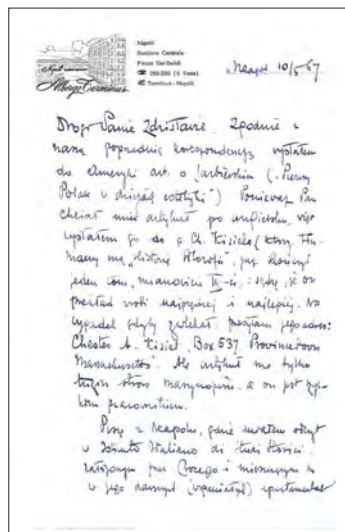 Napoli
Stazione Centrale
Piazza Garibaldi
Terminus - Napoli
Albergo Terminus
Neapol 10/5 67
Drogi Panie Zdzisławie. Zgodnie z
naszą poprzednią korespondencją wysłałem
do Ameryki art. o Sarbiewskim („Pierwszy
Polak w dziejach estetyki") Ponieważ Pan
chciał mieć artykuł po angielsku, więc
wysłałem go do p. Ch. Kisiela (który tłu-
maczy mą „Historię filozofii", już skończył
jeden tom, mianowicie III-ci i sądzę, że on
przekład zrobi najprędzej i najlepiej. Na
wypadek gdyby zwlekał przesyłam jego adres:
Chester A. Kisiel, Box 537 Provincetown
Massachusetts. Ale artykuł ma tylko
tuzin stron maszynopisu a on jest szyb-
kim pracownikiem.
Piszę z Neapolu, gdzie miałem odczyt
w Istituto Italiano di Studi Storici
założonym przez Crocego i mieszczącym się
w jego dawnym (wspaniałym) apartamencie